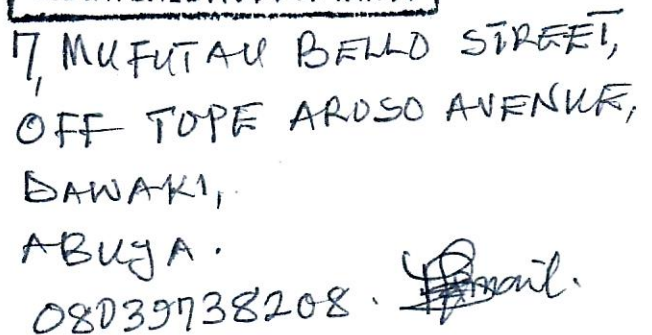 7, MUFUTAU BELLO STREET,
OFF TOPE AROSO AVENUE,
DAWAKI,
ABUJA.
08039738208.